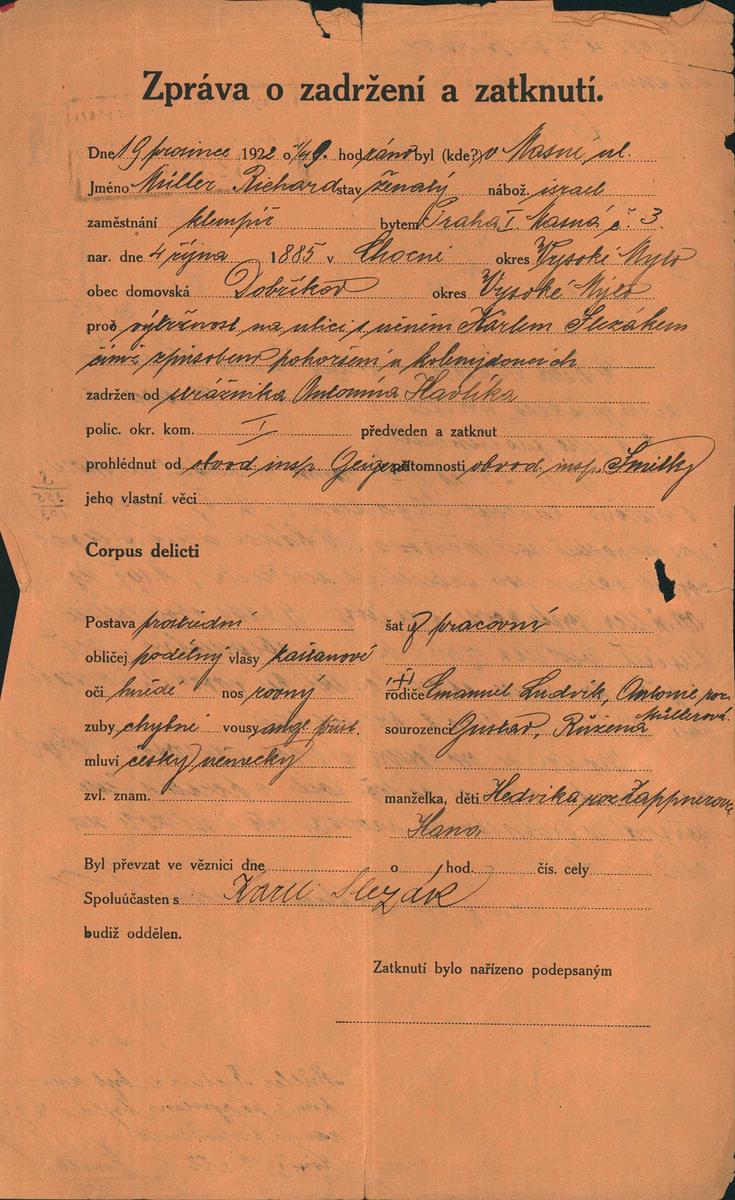 Zpráva o zadržení a zatknutí.
Dne 19 prosince 1922 o ¼9. hod ráno byl (kde?) v Masné ul.
Jméno Müller Richard stav ženatý nábož. israel
zaměstnání klempíř bytem Praha I Masná č. 3.
nar. dne 4 října 1885 v Chocni okres Vysoké Mýto
obec domovská Dobříkov okres Vysoké Mýto
proč výtržnost na ulici s učněm Karlem Slezákem
čímž způsobeno pohoršení u kolemjdoucích
zadržen od strážníka Antonína Havlíka
polic. okr. kom. I předveden a zatknut
prohlédnut od obvod. insp. Geigera přítomnosti obvod. insp. Smilky
jeho vlastní věci
Corpus delicti
Postava prostřední šat y pracovní
obličej podélný vlasy kaštanové
oči hnědé nos rovný rodiče Emanuel Ludvík, Antonie roz.
zuby chybné vousy angl. přist. sourozenci Gustav, Růžena Müllerová.
mluví česky německy
zvl. znam. manželka, děti Hedvika roz Zappnerová
Hana
Byl převzat ve věznici dne o hod. čís. cely
Spoluúčasten s Karel Slezák
budiž oddělen.
Zatknutí bylo nařízeno podepsaným